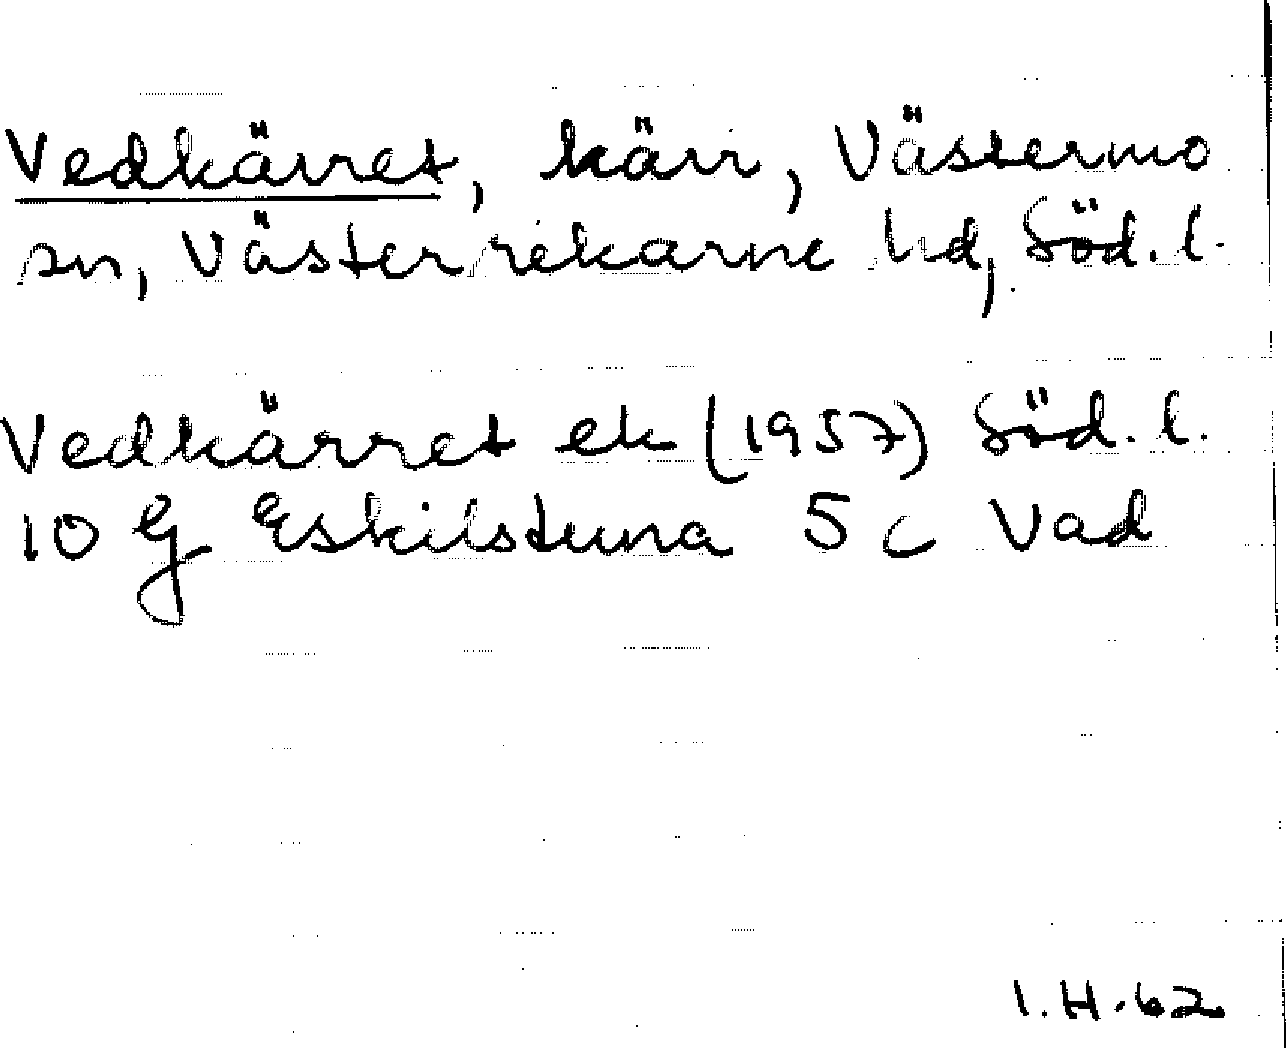 Vedkärret, kärr, Västermo
sn, Västerrekarne hd, Söd. l.
Vedkärret ek (1957) Söd. l.
10 G Eskilstuna 5 c Vad
I.H.62